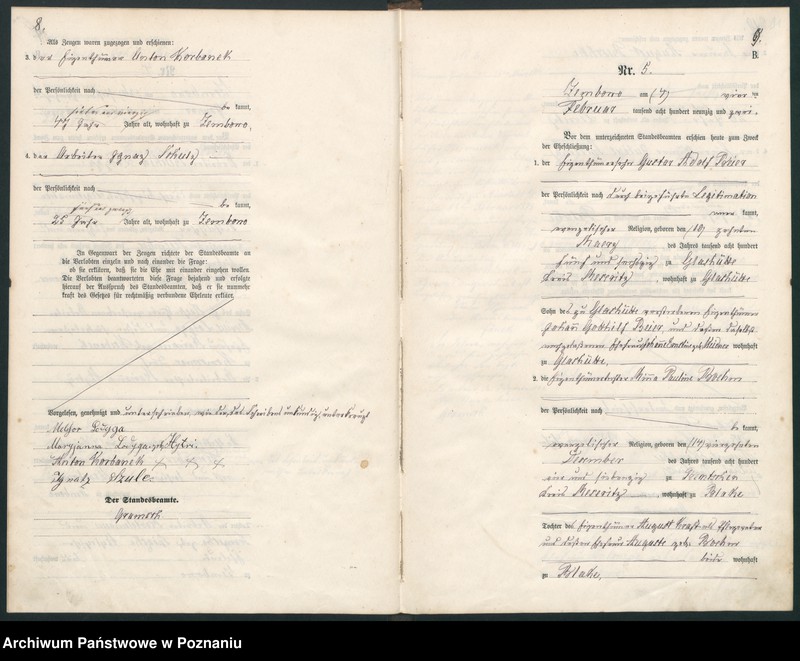 8.
Als Zeugen waren zugezogen und erschienen:
3. der Eigenthümer Anton Korbanek
der Persönlichkeit nach
be kannt,
sieben und vierzig
47 Jahr Jahre alt, wohnhaft zu Zembowo,
4. der Arbeiter Ignaz Schulz
der Persönlichkeit nach
be kannt,
fünf und zwanzig
25 Jahr Jahre alt, wohnhaft zu Zembowo
In Gegenwart der Zeugen richtete der Standesbeamte an
die Verlobten einzeln und nach einander die Frage:
ob sie erklären, daß sie die Ehe mit einander eingehen wollen.
Die Verlobten beantworteten diese Frage bejahend und erfolgte
hierauf der Ausspruch des Standesbeamten, daß er sie nunmehr
kraft des Gesetzes für rechtmäßig verbundene Eheleute erkläre.
Vorgelesen, genehmigt und unterschrieben, wie der des Schreibens unkundig, unterkreuzt
Melchor
Maryjanna
Anton Korbanek × × ×
Ignatz Szulc
Der Standesbeamte.
Gramsch
9.
B.
Nr. 5.
Zembowo am (4) vier ten
Februar tausend acht hundert neunzig und zwei.
Vor dem unterzeichneten Standesbeamten erschienen heute zum Zweck
der Eheschließung:
1. der Eigenthümersohn Gustav Adolf Beier
der Persönlichkeit nach durch beigeführte Legitimation
kannt,
evangelischer Religion, geboren den (10) zehnten
März des Jahres tausend acht hundert
fünf und sechszig zu Glashütte
Kreis Meseritz, wohnhaft zu Glashütte
Sohn des zu Glashütte verstorbenen Eigenthümer
Johann Gottlieb Beier, und dessen daselbst
wohnhaft
zu Glashütte.
2. die Eigenthümertochter Minna Pauline Kochen
der Persönlichkeit nach
be kannt,
evangelischer Religion, geboren den (14) vierzehnten
Dezember des Jahres tausend acht hundert
ein und siebenzig zu
Kreis Meseritz wohnhaft zu Blake
Tochter des Eigenthümer August
und dessen Ehefrau Auguste geb. Kochen
beide wohnhaft
zu Blake.
Archiwum Państwowe w Poznaniu